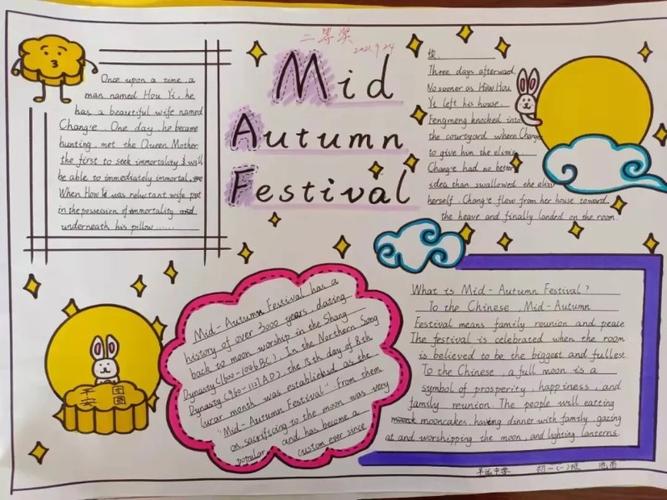 二等奖
2021.9.24
Mid
Autumn
Festival
Once upon a time, a
man named Hou Yi, he
has a beautiful wife named
Chang'e. One day, he became
hunting, met the Queen Mother
the first to seek immortality & will
be able to immediately immortal,
When Hou Yi was reluctant wife put
in the possession of immortality and
underneath his pillow......
Three days afterward,
No sooner as Hou Hou
Ye left his house
Fengmeng knocked into
the courtyard where Chang
to give him the elixir
Chang'e had no better
idea than swallowed the elixir
herself. Chang'e flew from her house toward
the heave and finally landed on the room.
Mid-Autumn Festival has a
history of over 3000 years, dating
back to moon worship in the Shang
Dynasty (1600-1046 BC). In the Northern Song
Dynasty (960-1127 AD), the 15th day of 8th
lunar month was established as the
"Mid-Autumn Festival". From them
on sacrificing to the moon was very
popular and has become a
custom ever since
What is Mid-Autumn Festival?
To the Chinese, Mid-Autumn
Festival means family reunion and peace
The festival is celebrated when the room
is believed to be the biggest and fullest
To the Chinese, a full moon is a
symbol of prosperity, happiness, and
family reunion. The people will eating
mooncakes, having dinner with family, gazing
at and worshipping the moon, and lighting lanterns.
平安
团圆